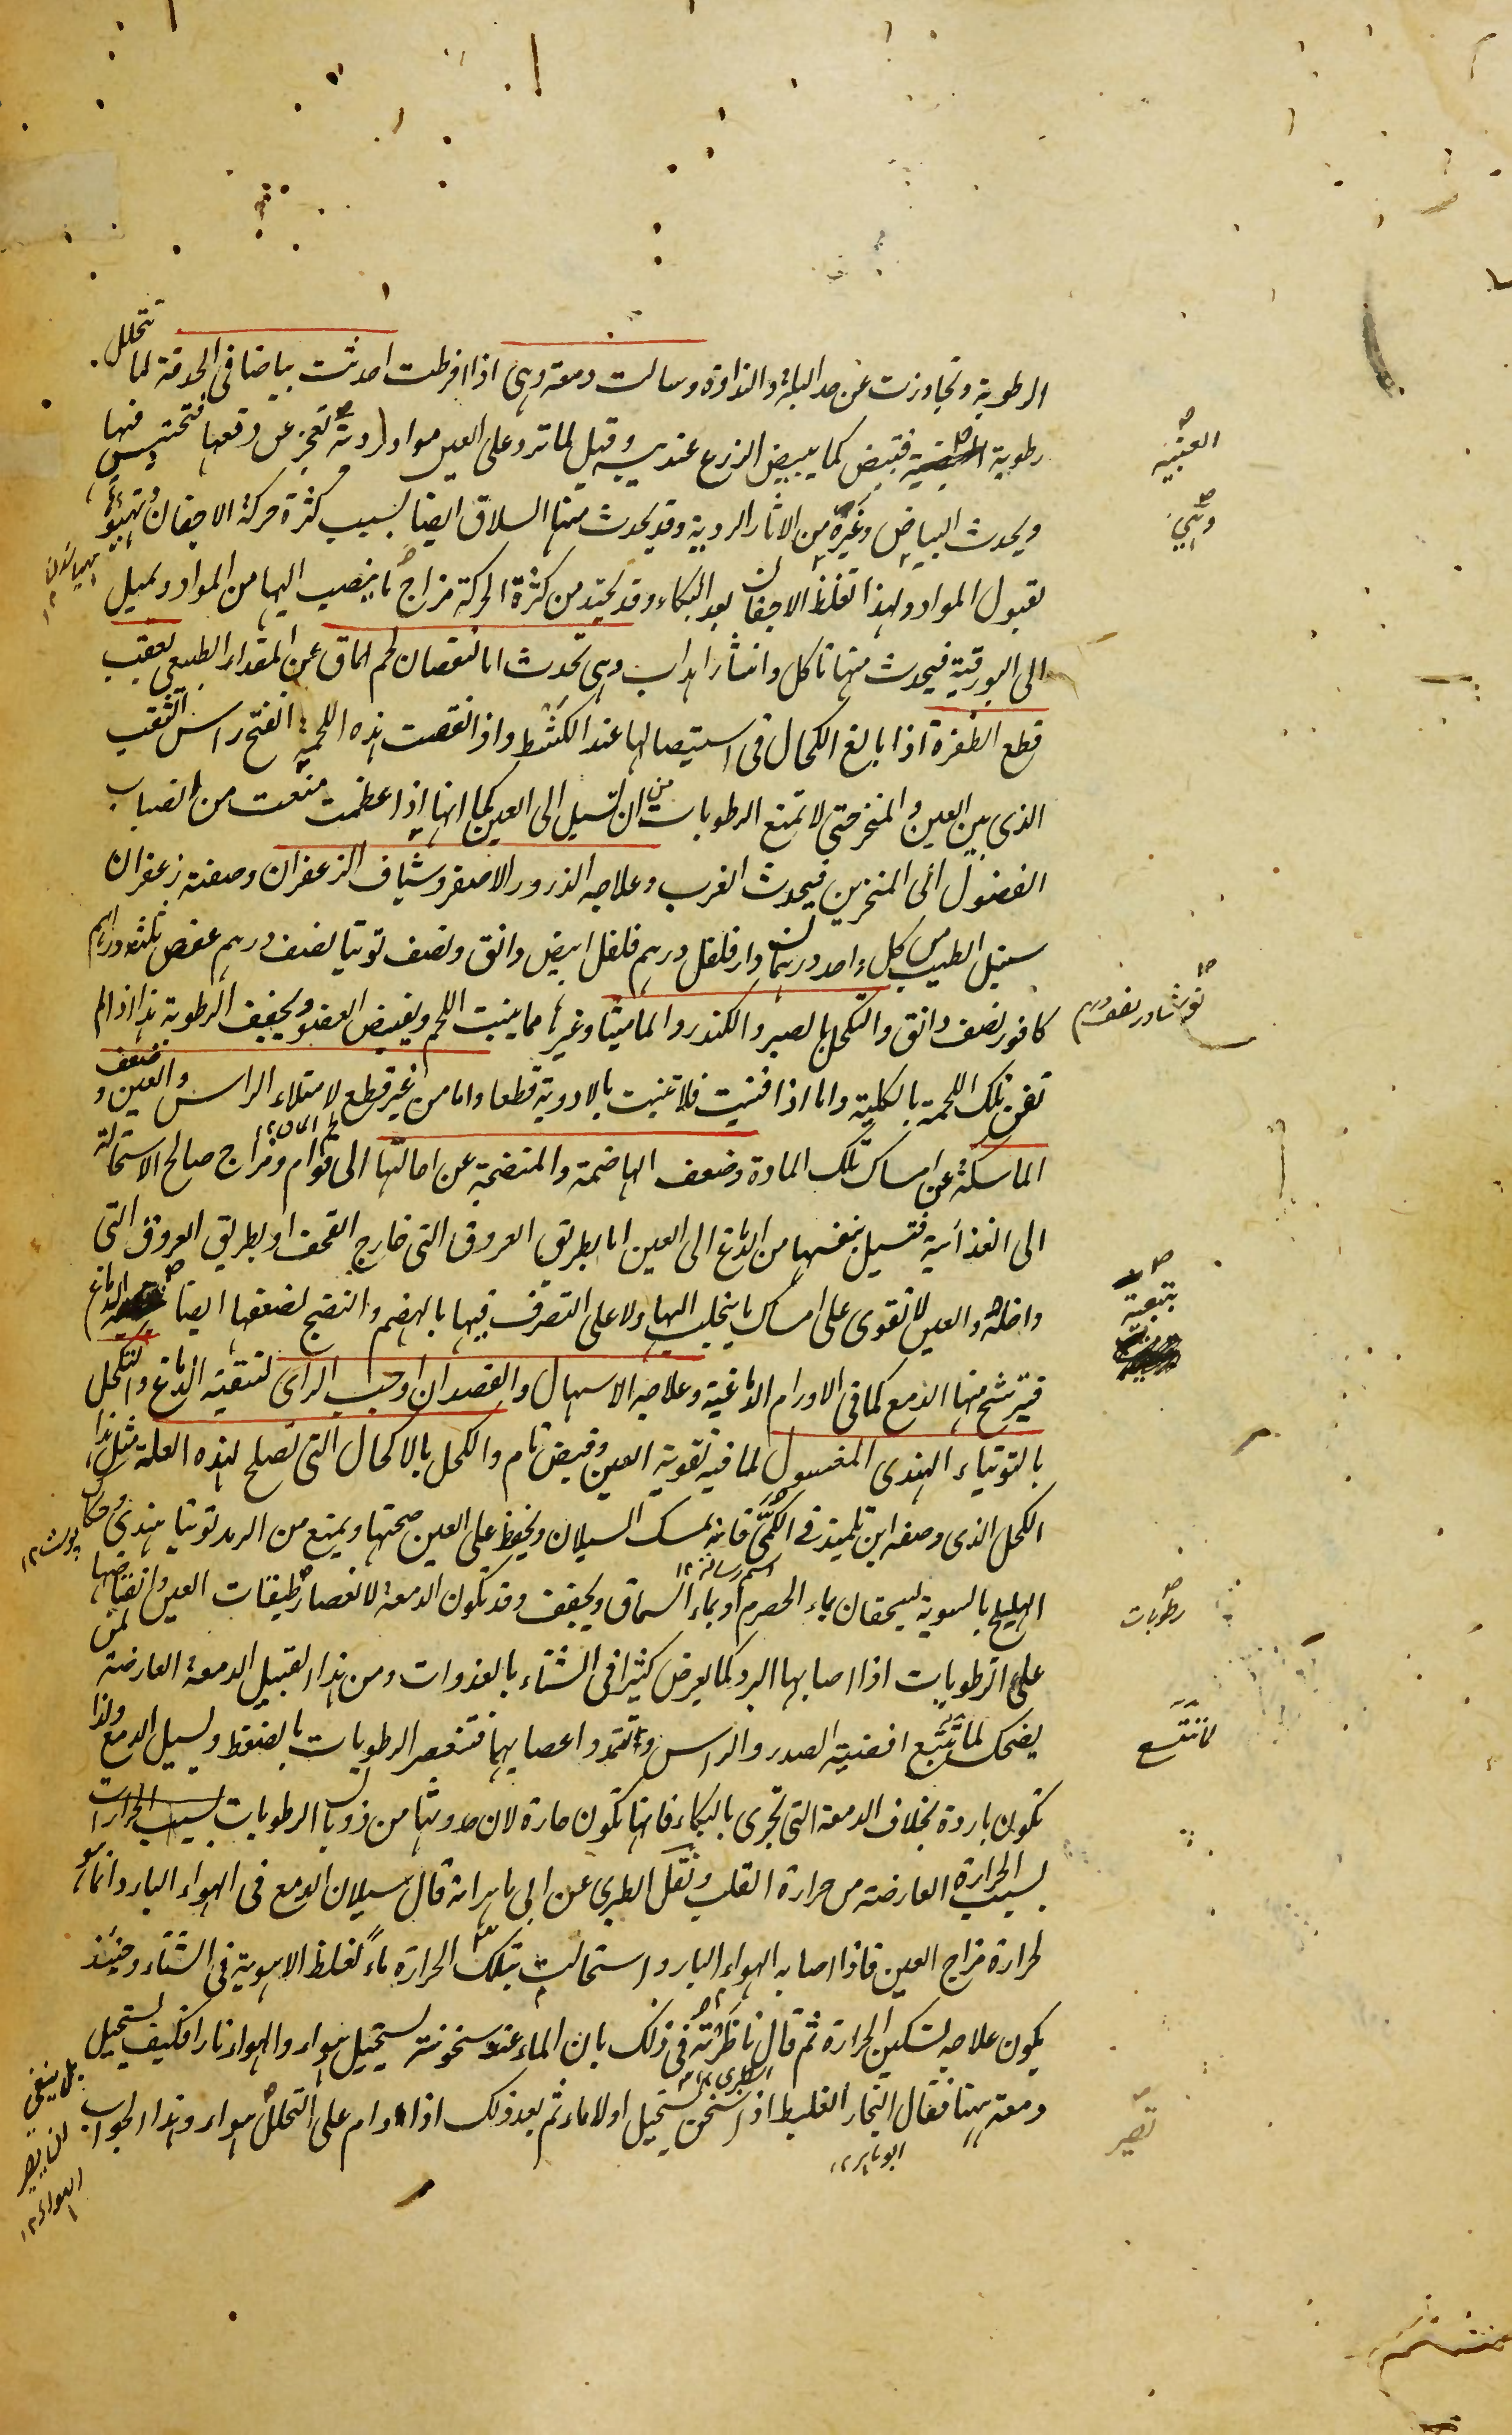 الرطوبة وتجاوزت عن حد البلة والنداوة وسالت دمعة وهى اذا افرطت احدثت بياضا فى الحدقة لما تتحلل
رطوبة فتبيض كما يبيض الزرع عند يبسه وقيل لما ترد على العين مواد ردية تعجز عن دفعها فتحتبس فيها
العنبيه
ويحدث البياض وغيره من الاثار الردية وقد يحدث منها السلاق ايضا بسبب كثرة حركة الاجفان وتهيؤها
لقبول المواد ولهذا تغلظ الاجفان بعد البكاء وقد يحتد من كثرة الحركة مزاج ما ينصب اليها من المواد ويميل
الى البورقية فيحدث منها تاكل وانتثار اهداب وهى تحدث اما لنقصان لحم الماق عن المقدار الطبيعى لعقب
قطع الظفرة اذا بالغ الكحال فى استيصالها عند الكشط واذا نقصت هذه اللحمة انفتح راس الثقب
الذى بين العين والمنخر حتى لا تمنع الرطوبات من ان تسيل الى العين كما انها اذا عظمت منعت من انصباب
الفضول الى المنخرين فيحدث الغرب وعلاجه الذرور الاصفر وشياف الزعفران وصفته زعفران
سنبل الطيب من كل واحد درهمان دار فلفل درهم فلفل ابيض دانق ونصف توتيا نصف درهم عفص ثلثه دراهم
نوشادر نصف درهم
كافور نصف دانق والتكحل بالصبر والكندر والماميثا وغيرها مما ينبت اللحم ويقبض العضو ويجفف الرطوبة هذا اذا لم
تفن تلك اللحمة بالكلية واما اذا فنيت فلا تنبت بالادوية قطعا واما من غير قطع لامتلاء الراس والعين وضعف
لحم الماق ١٢
الماسكة عن امساك تلك المادة وضعف الهاضمة والمنضجة عن احالتها الى قوام ومزاج صالح الاستحالة
الى الغذائية فتسيل بنفسها من الدماغ الى العين اما بطريق العروق التى خارج القحف او بطريق العروق التى
داخله والعين لا تقوى على امساك ما ينجلب اليها ولا على التصرف فيها بالهضم والنضج لضعفها ايضا الدماغ
فيترشح منها الدمع كما فى الاورام الدماغية وعلاجه الاسهال والفصد ان اوجب الراى لتنقية الدماغ والتكحل
بالتوتياء الهندى المغسول لما فيه تقوية العين وقبض تام والكحل بالاكحال التى تصلح لهذه العلة مثل هذا
الكحل الذى وصفه ابن تلميذ فى الكمى فانه يمسك السيلان ويحفظ على العين صحتها ويمنع من الرمد توتيا هندى وحكاك
اسم رسالة ١٢
الهليلج بالسوية يسحقان بماء الحصرم او بماء السماق ويجفف وقد تكون الدمعة لانعصار طبقات العين وانقباضها
رطوبات
على الرطوبات اذا اصابها البرد كما يعرض كثيرا فى الشتاء بالغدوات ومن هذا القبيل الدمعة العارضة لمن
يضحك لما تتسع افضية الصدر والراس وتتمدد اعصابهما فتنعصر الرطوبات بالضغط ويسيل الدمع ولذا
تكون باردة بخلاف الدمعة التى تجرى بالبكاء فانها تكون حارة لان حدوثها من ذوبان الرطوبات
بسبب الحرارة العارضة من حرارة القلب ونقل الطبرى عن ابى ماهر انه قال سيلان الدمع فى الهواء البارد انما هو
لحرارة مزاج العين فاذا اصابه الهواء البارد استحالت تلك الحرارة ماءً لغلظ الاهوية فى الشتاء وحينئذ
يكون علاجه تسكين الحرارة ثم قال ناظرته فى ذلك بان الماء عند سخونته يستحيل هواء والهواء نارا فكيف يستحيل
الطبرى
دمعة ههنا فقال البخار الغليظ اذا سخن يستحيل اولا ماء ثم بعد ذلك اذا دام على التحلل هواء وهذا الجواب
ابو ماهر ١٢
تصير